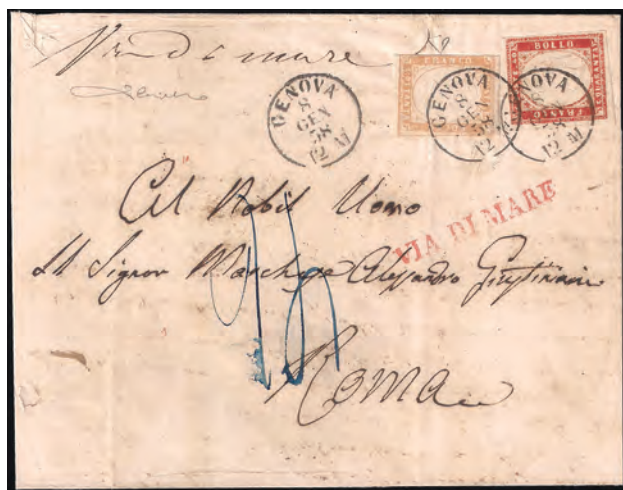 Via di mare
GENOVA
8
GEN
58
12 M
FRANCO
GENOVA
8
GEN
58
12 M
BOLLO
FRANCO
GENOVA
GEN
58
12 M
Al Nobil Uomo
VIA DI MARE
Il Signor Marchese Alessandro Giustiniani
16
Roma